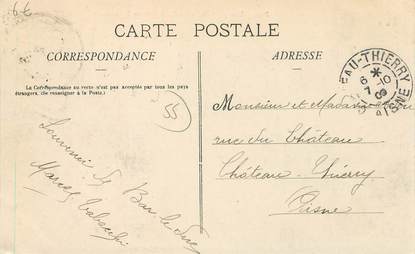 CARTE POSTALE
CORRESPONDANCE
ADRESSE
La Correspondance au verso n'est pas acceptée par tous les pays
étrangers. (Se renseigner à la Poste.)
55
Souvenir de Bar le Duc
Marcel
EAU-THIERRY
AISNE
Monsieur et Madame
rue du Château
Château-Thierry
Aisne